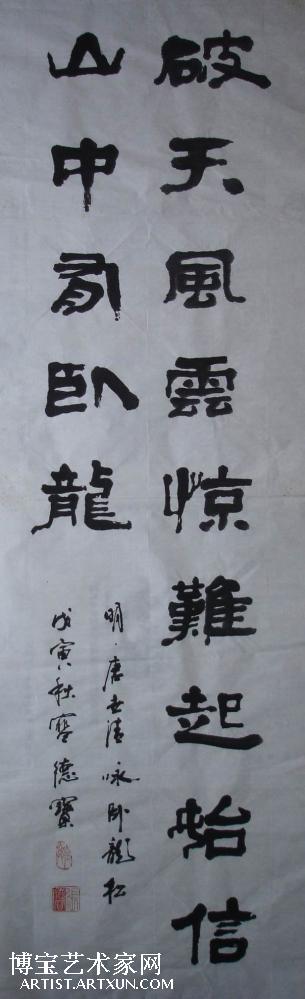 破天風雲惊難起始信
山中有臥龍
明·唐世清咏卧龍松
戊寅秋宵德寶
博宝艺术家网
ARTIST.ARTXUN.COM